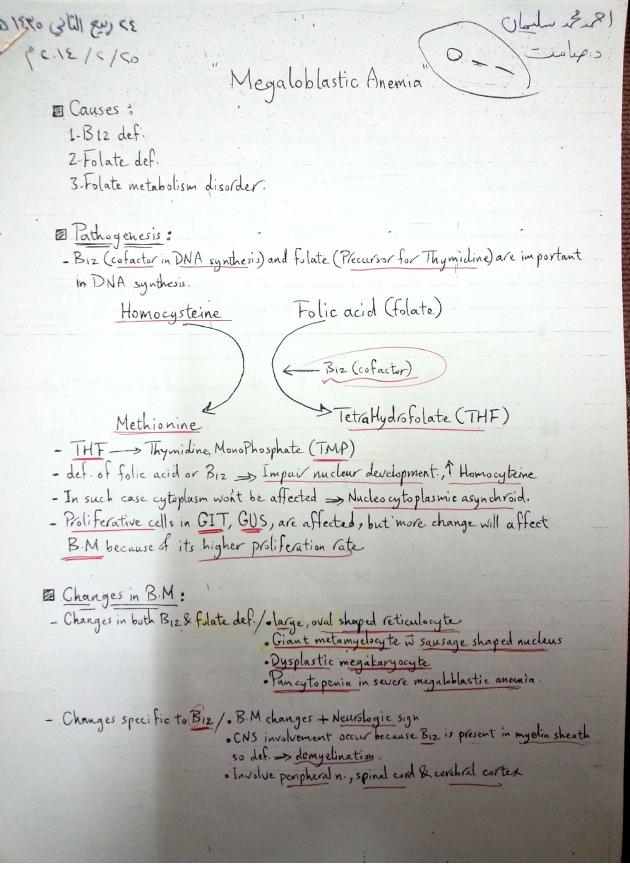 احمد محمد سليمان
٢٤ ربيع الثاني ١٤٣٥ هـ
٢٥/٢/٢٠١٤م
"Megaloblastic Anemia"
Causes:
1-B12 def.
2-Folate def.
3-Folate metabolism disorder.
Pathogenesis:
- B12 (cofactor in DNA synthesis) and folate (Precursor for Thymidine) are important
in DNA synthesis.
Homocysteine Folic acid (folate)
B12 (cofactor)
Methionine TetraHydrofolate (THF)
- THF → Thymidine MonoPhosphate (TMP)
- def. of folic acid or B12 ⇒ Impair nuclear development, ↑ Homocyteine
- In such case cytoplasm won't be affected ⇒ Nucleocytoplasmic asynchroid.
- Proliferative cells in GIT, GUS, are affected, but more change will affect
B.M because of its higher proliferation rate
Changes in B.M:
- Changes in both B12 & folate def./ • large, oval shaped reticulocyte
• Giant metamyelocyte w̄ sausage shaped nucleus
• Dysplastic megakaryocyte
• Pancytopenia in severe megaloblastic anemia.
- Changes specific to B12 / • B.M changes + Neurologic sign
• CNS involvement occur because B12 is present in myelin sheath
so def. ⇒ demyelination.
• Involve peripheral n., spinal cord & cerebral cortex